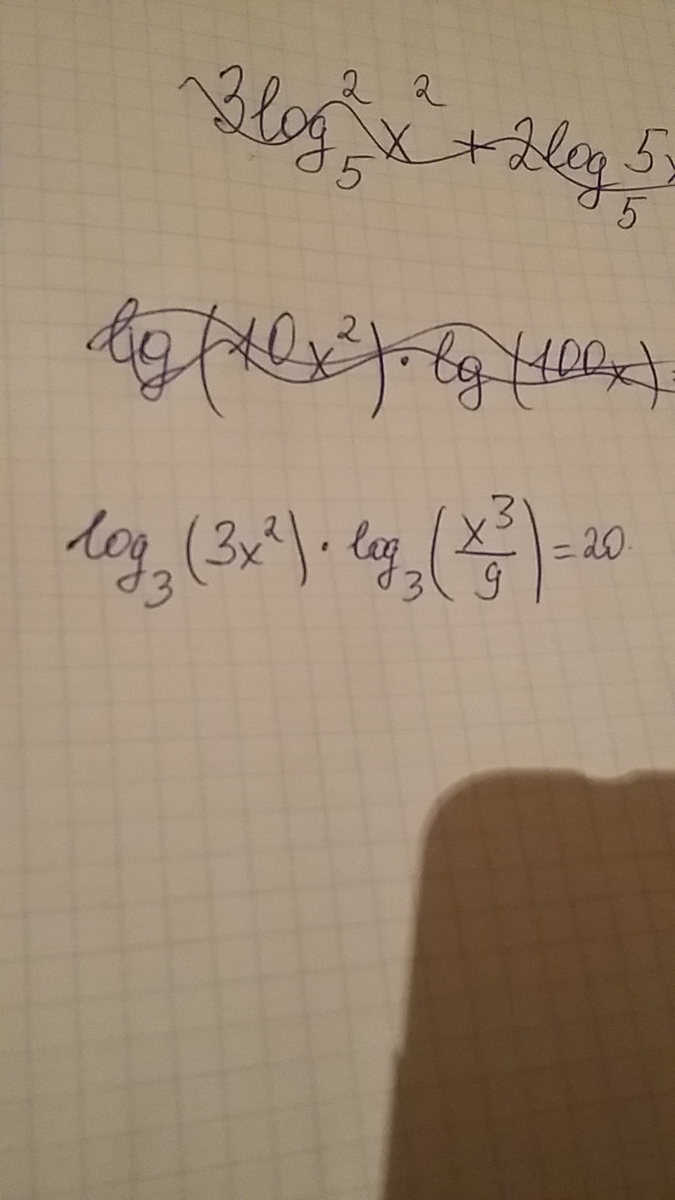 3log₅²x² + 2log₅5x
lg(10x²)·lg(100x)=
log₃(3x²)·log₃(x³/9)=20.